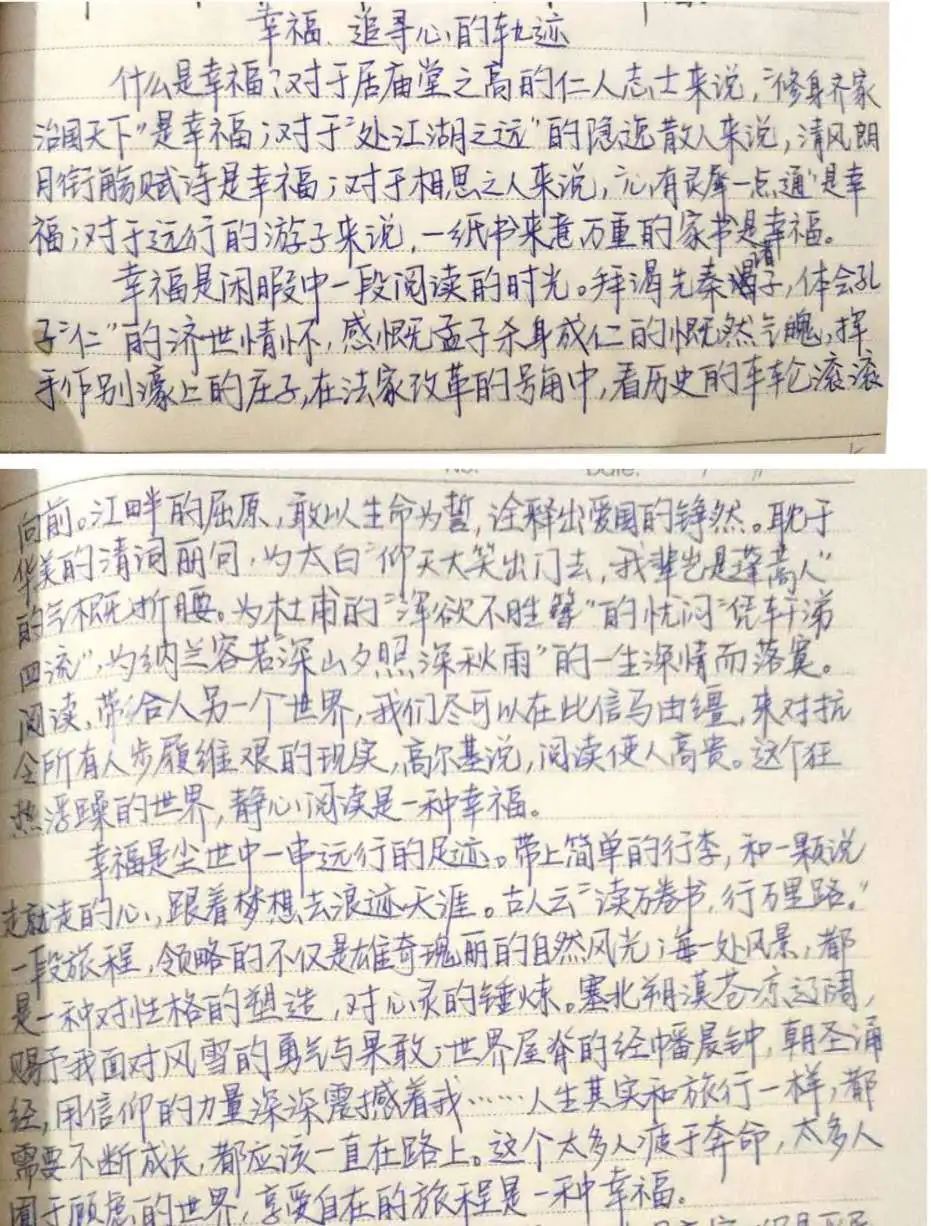 幸福、追寻心的轨迹
什么是幸福?对于居庙堂之高的仁人志士来说,“修身齐家
治国天下”是幸福;对于“处江湖之远”的隐逸散人来说,清风朗
月衔觞赋诗是幸福;对于相思之人来说,“心有灵犀一点通”是幸
福;对于远行的游子来说,一纸书来意万重的家书是幸福。
幸福是闲暇中一段阅读的时光。拜谒先秦诸子,体会孔
子“仁”的济世情怀,感慨孟子杀身成仁的慨然气魄,挥
手作别濠上的庄子,在法家改革的号角中,看历史的车轮滚滚
No. Date.
向前。江畔的屈原,敢以生命为誓,诠释出爱国的铮然。耽于
华美的清词丽句,为太白“仰天大笑出门去,我辈岂是蓬蒿人”
的气概折腰。为杜甫的“浑欲不胜簪”的忧闷“凭轩涕
四流”,为纳兰容若“深山夕照深秋雨”的一生深情而落寞。
阅读,带给人另一个世界,我们尽可以在此信马由缰,来对抗
令所有人步履维艰的现实,高尔基说,阅读使人高贵。这个狂
热浮躁的世界,静心阅读是一种幸福。
幸福是尘世中一串远行的足迹。带上简单的行李,和一颗说
走就走的心,跟着梦想去浪迹天涯。古人云“读万卷书,行万里路。”
一段旅程,领略的不仅是雄奇瑰丽的自然风光;每一处风景,都
是一种对性格的塑造,对心灵的锤炼。塞北朔漠苍凉辽阔,
赐予我面对风雪的勇气与果敢;世界屋脊的经幡晨钟,朝圣诵
经,用信仰的力量深深震撼着我……人生其实和旅行一样,都
需要不断成长,都应该一直在路上。这个太多人疲于奔命,太多人
囿于顾虑的世界,享受自在的旅程是一种幸福。